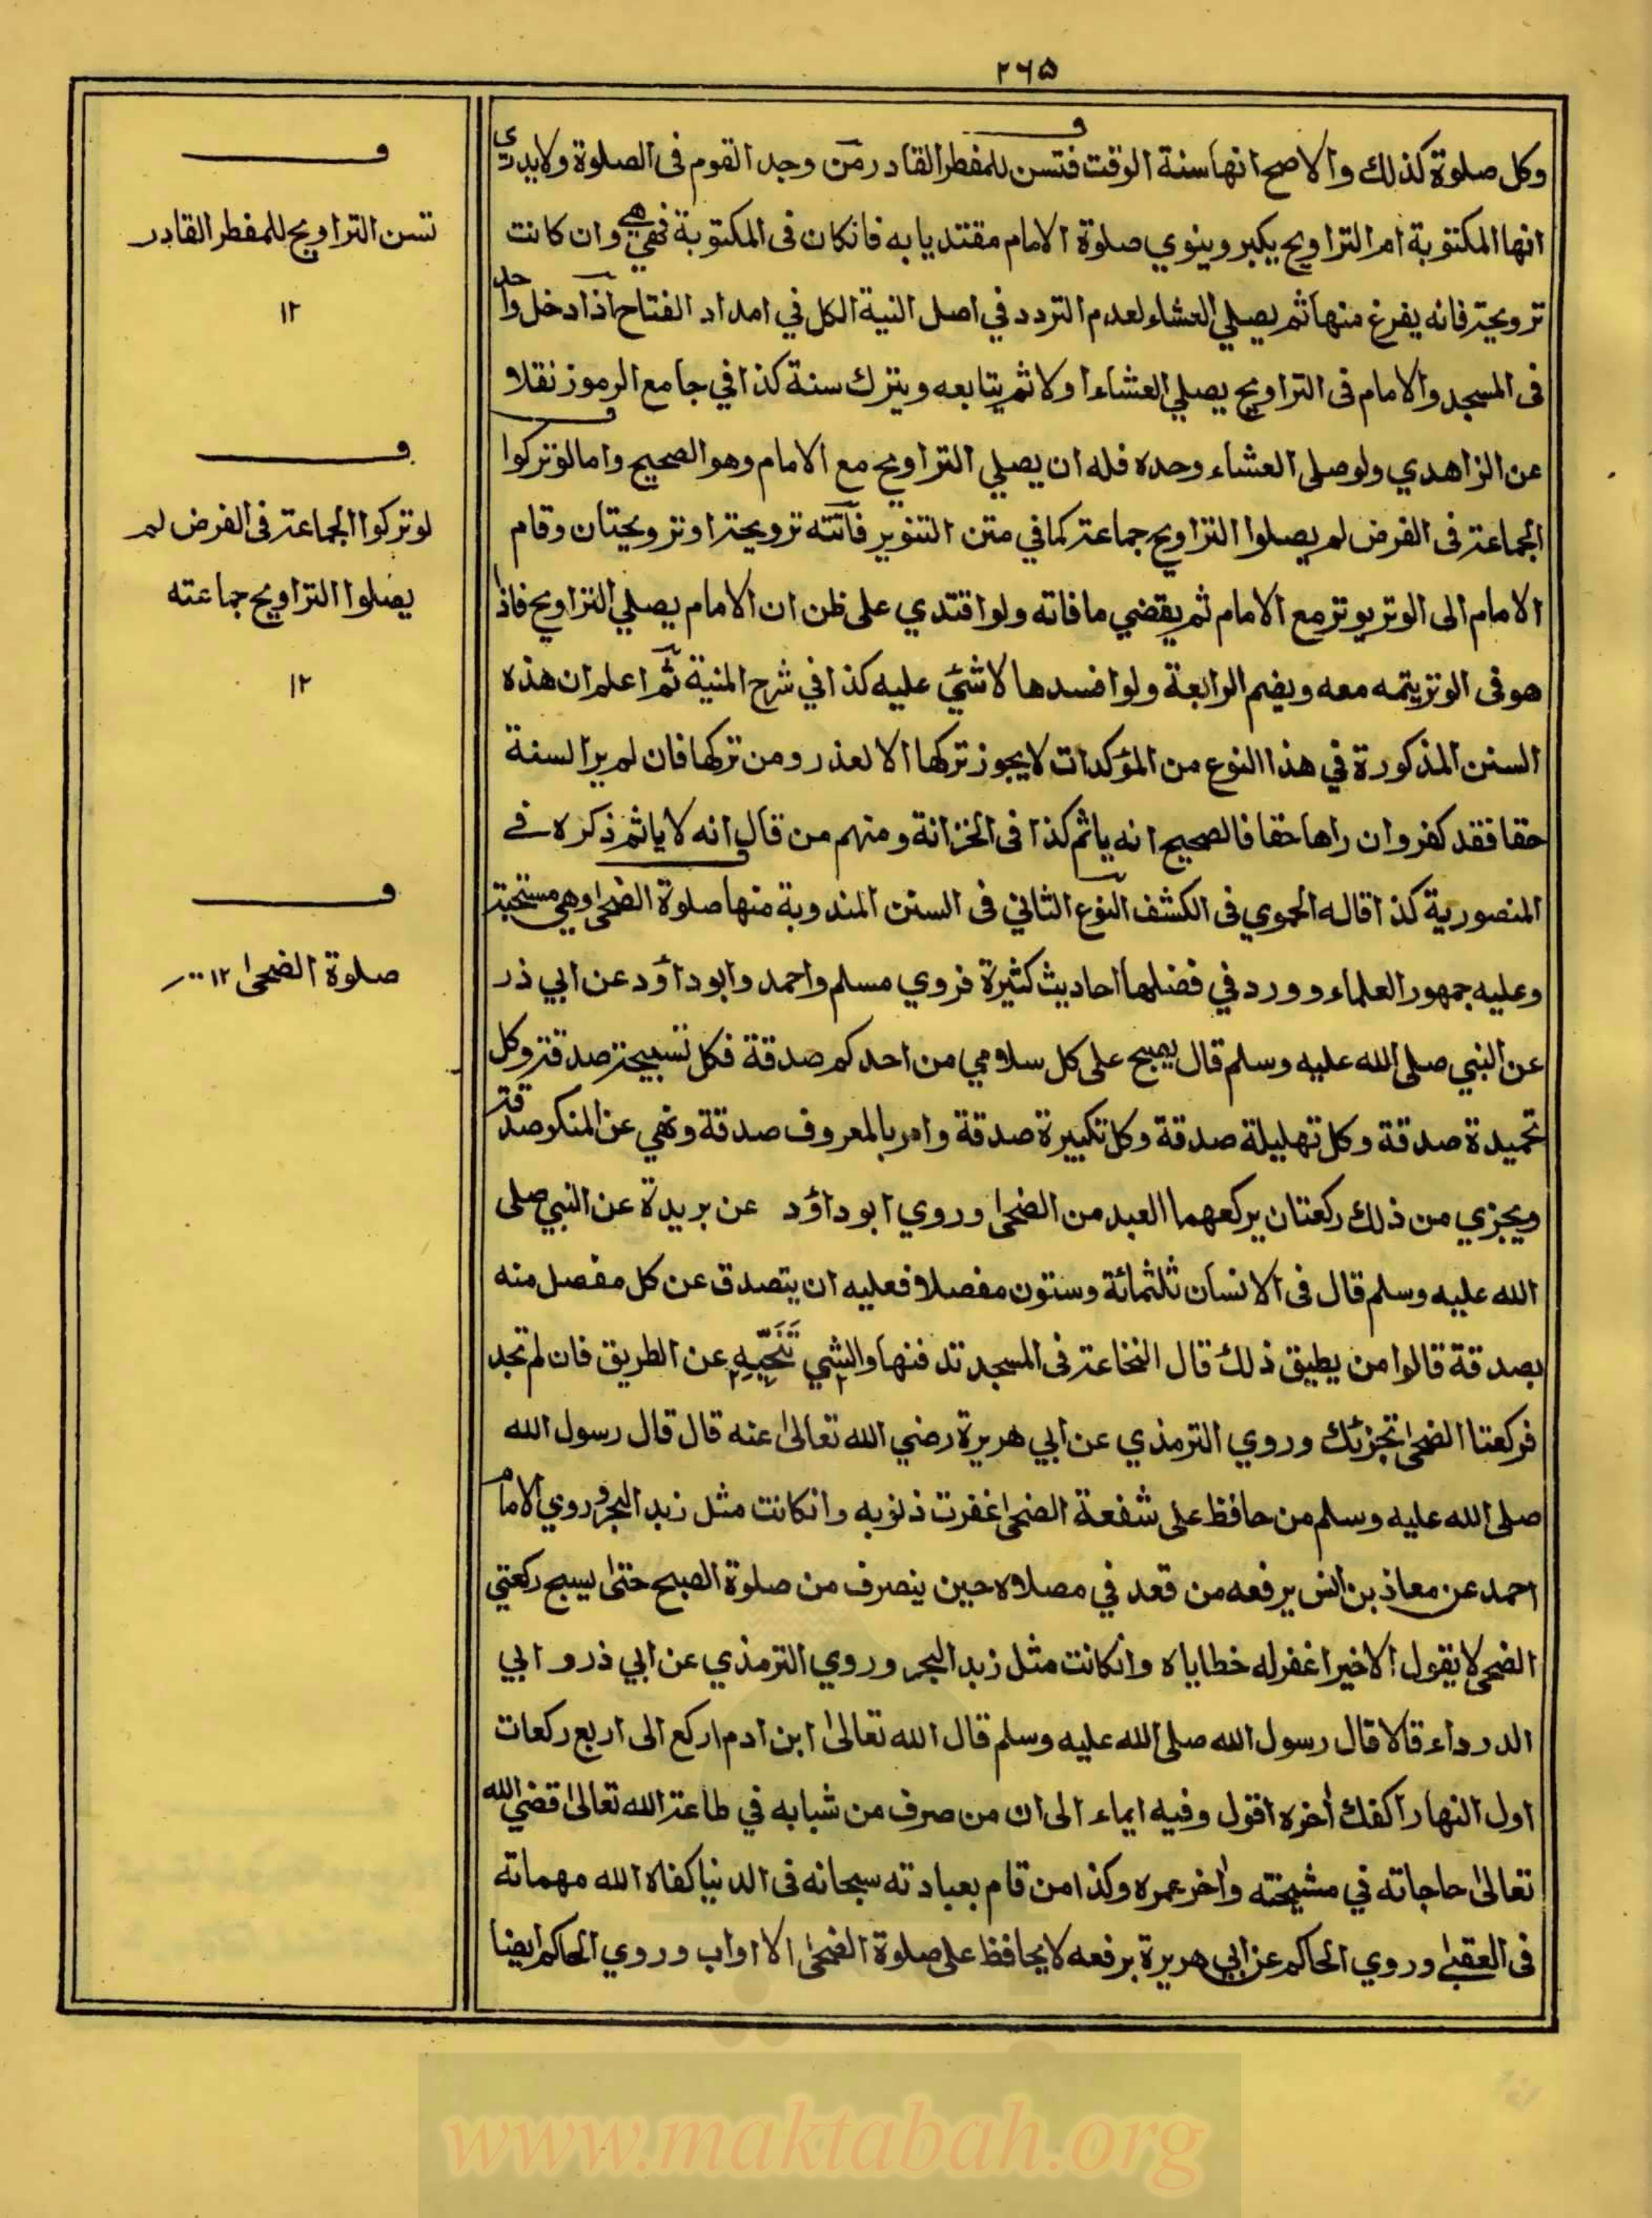 ۲۶۵
وكل صلوة كذلك والاصح انها سنة الوقت فتسن للمفطر القادر من وجد القوم فى الصلوة ولا يدرى
انها المكتوبة ام التراويح يكبر وينوي صلوة الامام مقتديا به فانكان فى المكتوبة فهي هي وان كانت
ترويحة فانه يفرغ منها ثم يصلي العشاء لعدم التردد في اصل النية الكل في امداد الفتاح اذا دخل واحد
فى المسجد والامام فى التراويح يصلي العشاء اولا ثم يتابعه ويترك سنة كذا في جامع الرموز نقلا
عن الزاهدي ولو صلى العشاء وحده فله ان يصلي التراويح مع الامام وهو الصحيح واما لو تركوا
الجماعة فى الفرض لم يصلوا التراويح جماعة كما في متن التنوير فاتته ترويحة او ترويحتان وقام
الامام الى الوتر يوتر مع الامام ثم يقضي ما فاته ولو اقتدي على ظن ان الامام يصلي التراويح فاذا
هو فى الوتر يتمه معه ويضم الرابعة ولو افسدها لا شئ عليه كذا في شرح المنية ثم اعلم ان هذه
السنن المذكورة في هذا النوع من المؤكدات لا يجوز تركها الا لعذر ومن تركها فان لم ير السنة
حقا فقد كفر وان راها حقا فالصحيح انه ياثم كذا فى الخزانة ومنهم من قال انه لا ياثم ذكره في
المنصورية كذا قاله الحموي فى الكشف النوع الثاني فى السنن المندوبة منها صلوة الضحى وهي مستحبة
وعليه جمهور العلماء وورد في فضلها احاديث كثيرة فروي مسلم واحمد وابو داؤد عن ابي ذر
عن النبي صلى الله عليه وسلم قال يصبح على كل سلامي من احدكم صدقة فكل تسبيحة صدقة وكل
تحميدة صدقة وكل تهليلة صدقة وكل تكبيرة صدقة وامر بالمعروف صدقة ونهي عن المنكر صدقة
ويجزي من ذلك ركعتان يركعهما العبد من الضحى وروي ابو داؤد عن بريدة عن النبي صلى
الله عليه وسلم قال فى الانسان ثلثمائة وستون مفصلا فعليه ان يتصدق عن كل مفصل منه
بصدقة قالوا من يطيق ذلك قال النخاعة فى المسجد تدفنها والشي تنحيه عن الطريق فان لم تجد
فركعتا الضحى تجزئك وروي الترمذي عن ابي هريرة رضي الله تعالى عنه قال قال رسول الله
صلى الله عليه وسلم من حافظ على شفعة الضحى غفرت ذنوبه وانكانت مثل زبد البحر وروي الامام
احمد عن معاذ بن انس يرفعه من قعد في مصلاه حين ينصرف من صلوة الصبح حتى يسبح ركعتي
الضحى لا يقول الا خيرا غفر له خطاياه وانكانت مثل زبد البحر وروي الترمذي عن ابي ذر و ابي
الدرداء قالا قال رسول الله صلى الله عليه وسلم قال الله تعالى ابن ادم اركع الى اربع ركعات
اول النهار اكفك أخره اقول وفيه ايماء الى ان من صرف من شبابه في طاعة الله تعالى قضي الله
تعالى حاجاته في مشيخته وأخر عمره وكذا من قام بعبادته سبحانه فى الدنيا كفاه الله مهماته
فى العقبى وروي الحاكم عن ابي هريرة يرفعه لا يحافظ على صلوة الضحى الا اواب وروي الحاكم ايضا
ف
تسن التراويح للمفطر القادر
۱۲
ف
لو تركوا الجماعة فى الفرض لم
يصلوا التراويح جماعته
۱۲
ف
صلوة الضحى ۱۲
www.maktabah.org